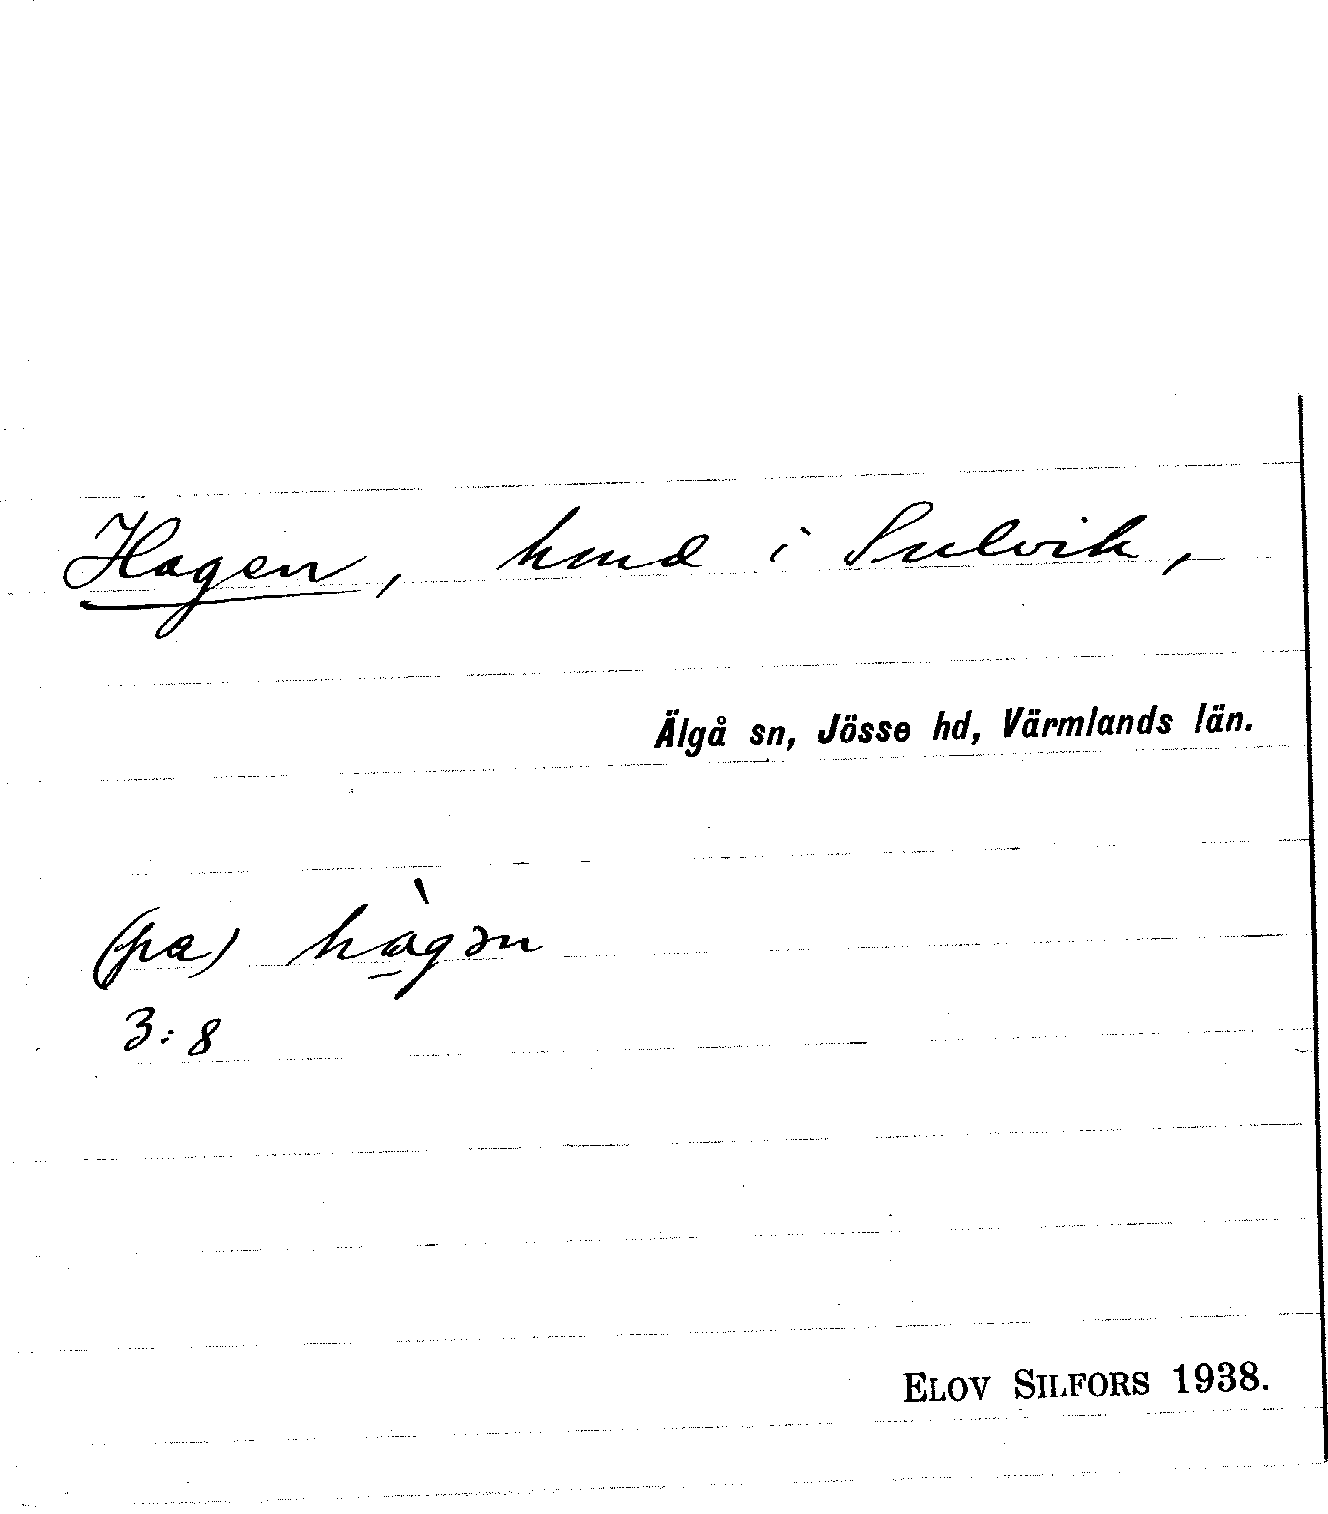 Hagen, hmd i Sulvik,
Älgå sn, Jösse hd, Värmlands län.
(pa) hàgən
3:8
ELOV SILFORS 1938.